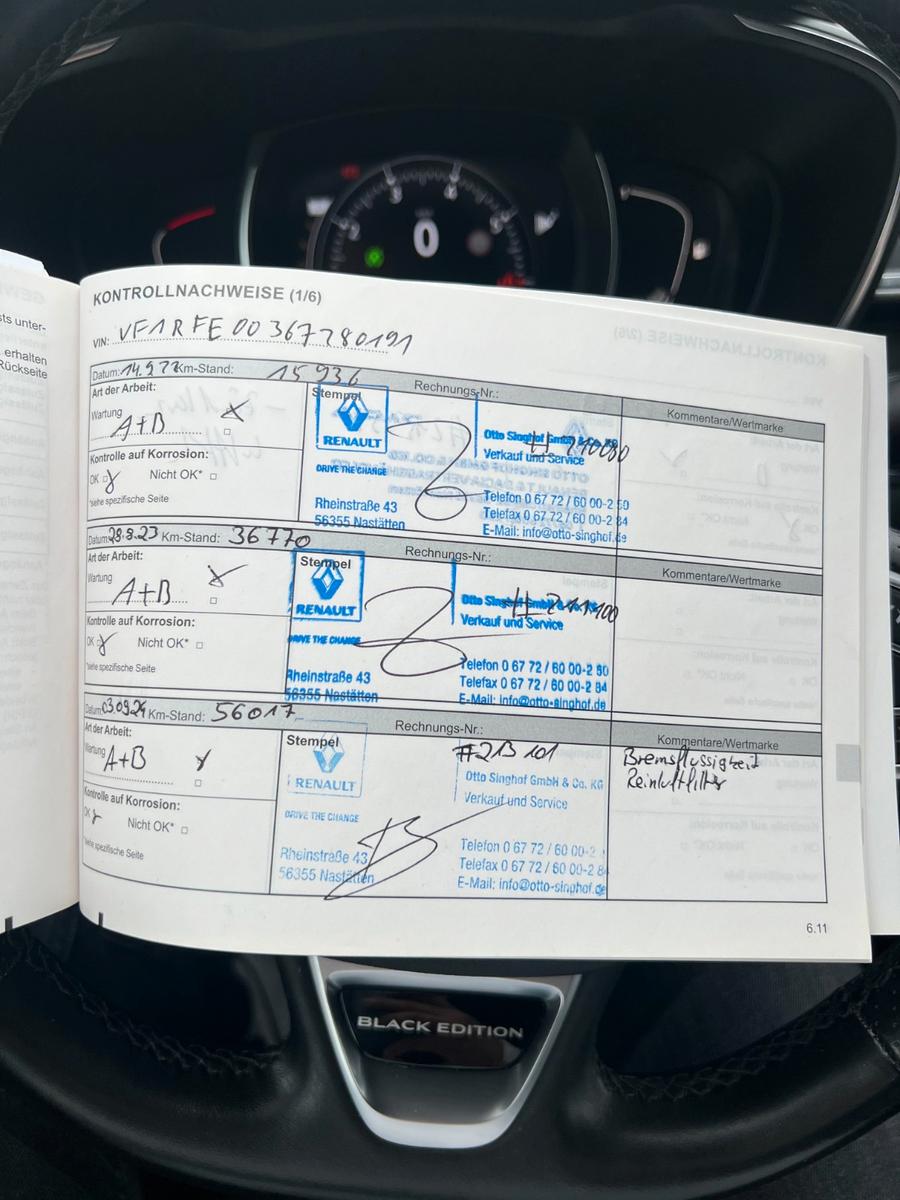 KONTROLLNACHWEISE (1/6)
VIN: VF1RFE00367280191
sts unter-
erhalten
Rückseite
Datum: 14.9.22 Km-Stand: 15936 Rechnungs-Nr.:
Art der Arbeit: Stempel Kommentare/Wertmarke
Wartung
A+B
RENAULT
DRIVE THE CHANGE
Otto Singhof GmbH & Co. KG
Verkauf und Service
Kontrolle auf Korrosion:
OK Nicht OK*
*siehe spezifische Seite
Rheinstraße 43
56355 Nastätten
Telefon 0 67 72 / 60 00-2
Telefax 0 67 72 / 60 00-2 84
E-Mail: info@otto-singhof.de
Datum: 28.8.23 Km-Stand: 36770 Rechnungs-Nr.:
Art der Arbeit: Stempel Kommentare/Wertmarke
Wartung
A+B
RENAULT
DRIVE THE CHANGE
Otto Singhof GmbH & Co. KG
Verkauf und Service
Kontrolle auf Korrosion:
OK Nicht OK*
*siehe spezifische Seite
Rheinstraße 43
56355 Nastätten
Telefon 0 67 72 / 60 00-2
Telefax 0 67 72 / 60 00-2 84
E-Mail: info@otto-singhof.de
Datum: 03.09.24 Km-Stand: 56017 Rechnungs-Nr.:
Art der Arbeit: Stempel #213101 Kommentare/Wertmarke
Wartung
A+B
RENAULT
DRIVE THE CHANGE
Otto Singhof GmbH & Co. KG
Verkauf und Service
Bremsflüssigkeit
Reinluftfilter
Kontrolle auf Korrosion:
OK Nicht OK*
*siehe spezifische Seite
Rheinstraße 43
56355 Nastätten
Telefon 0 67 72 / 60 00-2
Telefax 0 67 72 / 60 00-2 84
E-Mail: info@otto-singhof.de
6.11
0
BLACK EDITION